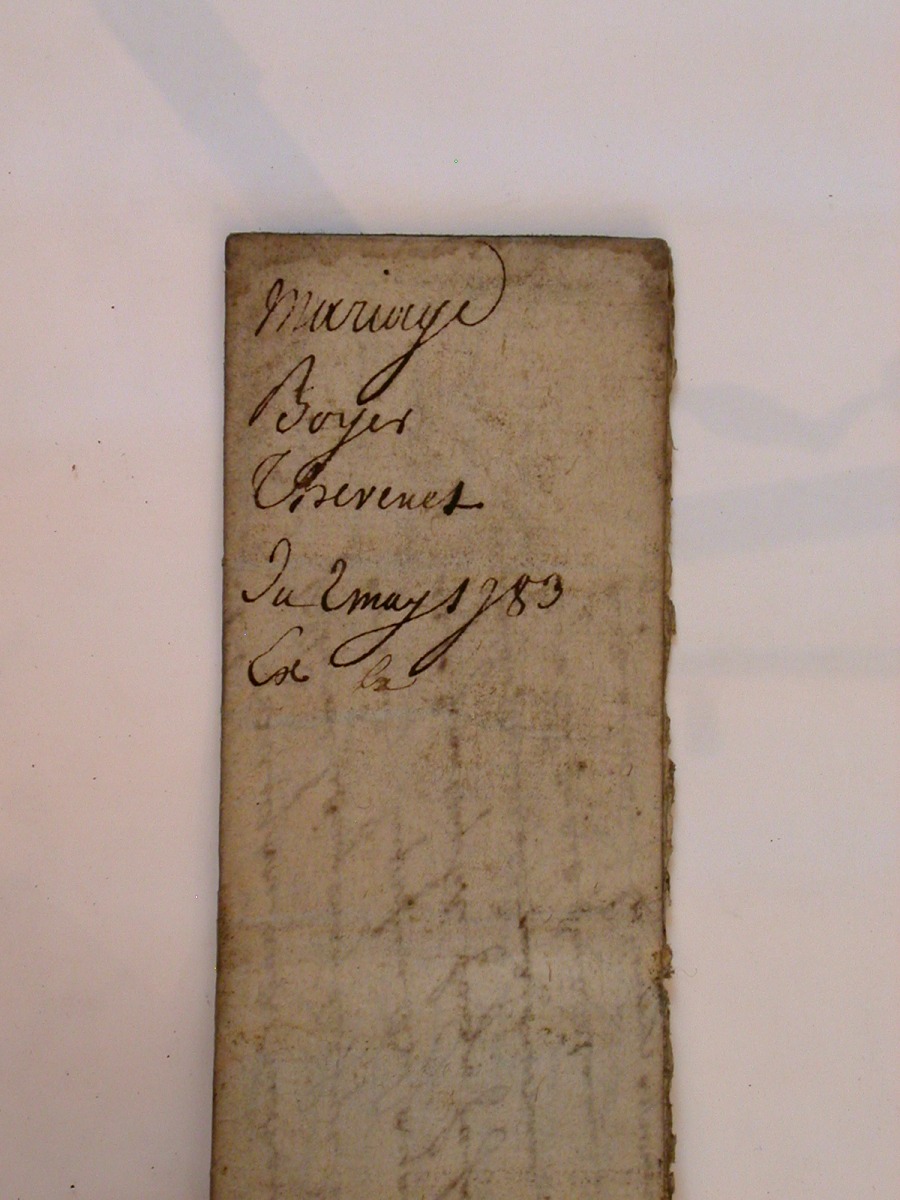 Mariage
Boyer
Thevenet
Du 2 may 1783
Ex